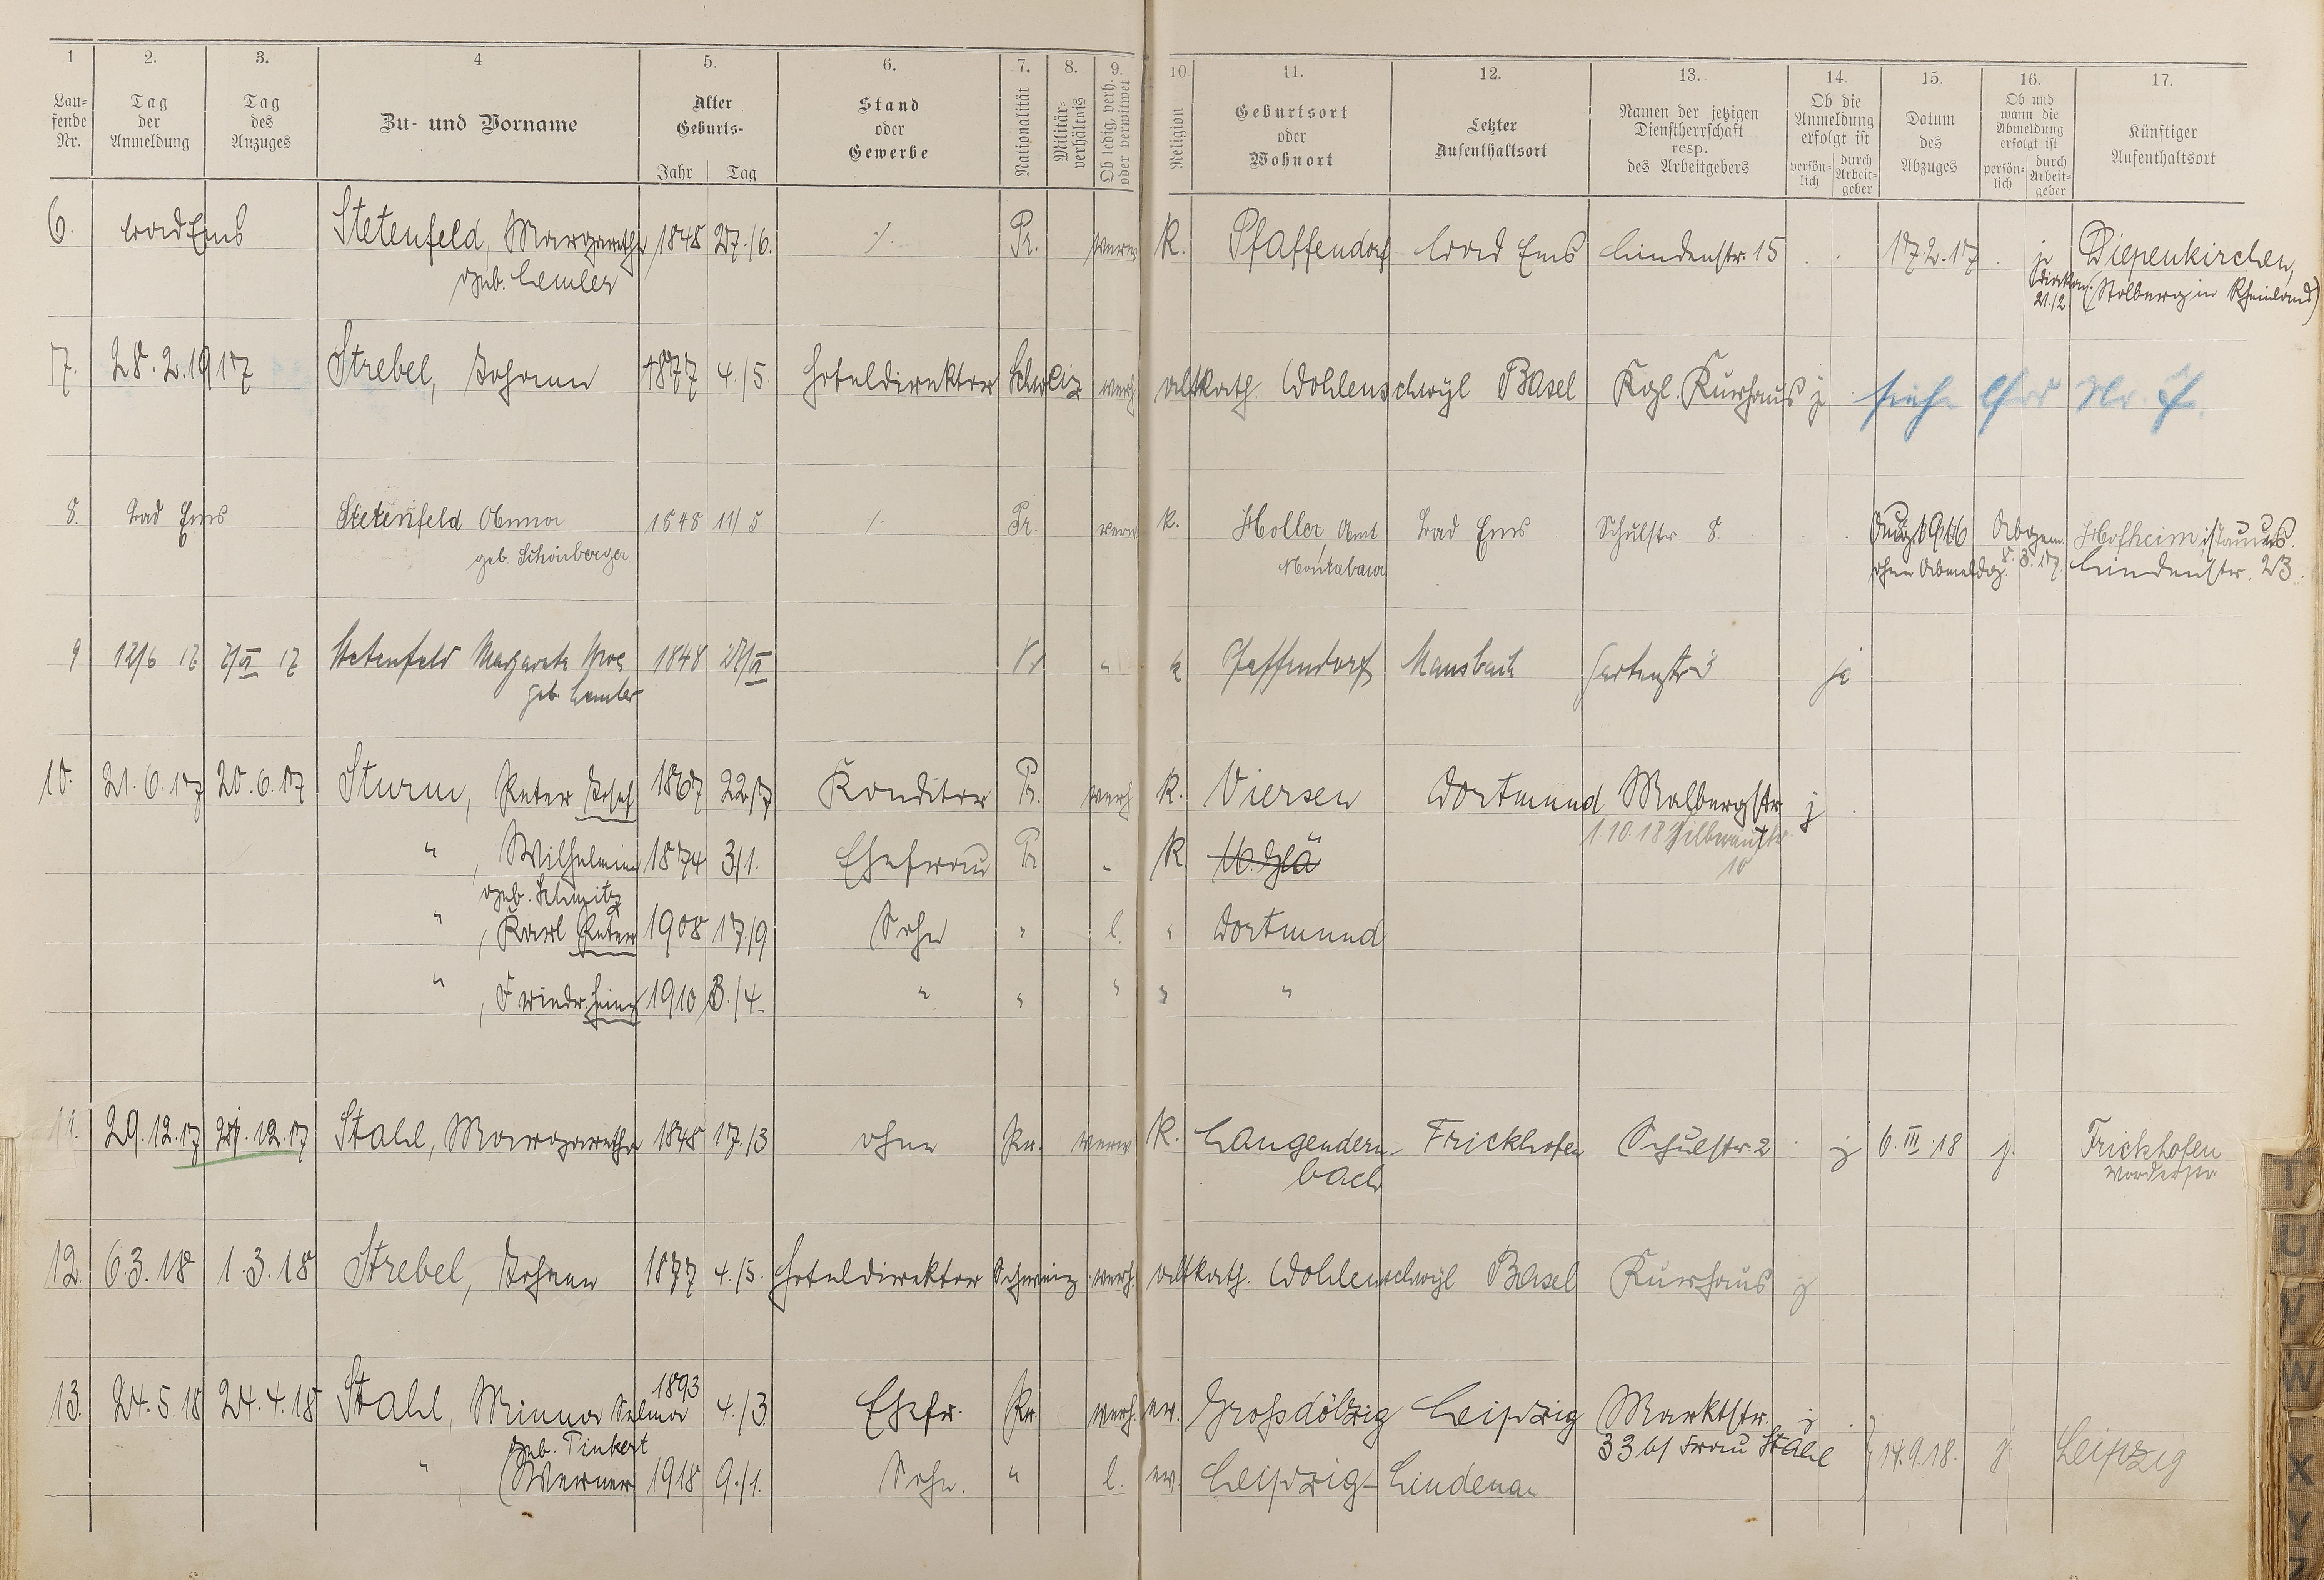 1 2. 3. 4 5. 6. 7. 8. 9. 10 11. 12. 13. 14. 15. 16. 17.
Lau-fende Nr. Tag der Anmeldung Tag des Anzuges Zu- und Vorname Alter Geburts- Jahr Tag Stand oder Gewerbe Nationalität Militär-verhältnis Ob ledig, verh. oder verwitwet Religion Geburtsort oder Wohnort Letzter Aufenthaltsort Namen der jetzigen Dienstherrschaft resp. des Arbeitgebers Ob die Anmeldung erfolgt ist persön-lich durch Arbeit-geber Datum des Abzuges Ob und wann die Abmeldung erfolgt ist persön-lich durch Arbeit-geber Künftiger Aufenthaltsort
6. bad Ems Stetenfeld, Margarethe 1848 27./6. ./. Pr. verw k. Pfaffendorf bad Ems Lindenstr. 15 17.2.17 j Diepenkirchen,
geb. Lemler 21./2 (Stolberg in Rheinland)
7. 28.2.1917 Strebel, Johann 1877 4./5. Hoteldirektor Schweiz verh altkath. Wohlenschwyl Basel Kgl. Kurhaus j siehe Nr.
8. bad Ems Stetenfeld Anna 1848 11/5 ./. Pr. verw k. Holler, Amt bad Ems Schulstr. 8 Aug. 1916 Abgem. Hofheim i/Taunus.
geb. Schönberger Montabaur ohne Abmeldg. 8.3.17. Lindenstr. 23.
9 12/6 17 17 Stetenfeld Margareta Wwe 1848 27/VI Pr " k Pfaffendorf Mansbach Gartenstr 3 ja
geb. Lemler
10. 21.6.17 20.6.17 Sturm, Peter Josef 1867 22./7 Konditor Pr. verh k. Viersen Dortmund Malbergstr j
1.10.18
" , Wilhelmine 1874 3/1. Ehefrau Pr " k. M. Gla 10
geb. Schmitz
" , Karl Peter 1908 17./9 Sohn " l. " Dortmund
" , Friedr. Heinz 1910 3./4. " " " " "
11. 29.12.17 .12.17 Stahl, Margarethe 1848 17./3 ohne Pr. verw k. Langendern- Frickhofen Schulstr. 2 j 6.III.18 j. Frickhofen
bach Vorderstr.
12. 6.3.18 1.3.18 Strebel, Johann 1877 4./5. Hoteldirektor Schweiz verh. altkath. Wohlenschwyl Basel Kurhaus j
13. 24.5.18 24.4.18 Stahl, Minna Selma 1893 4./3 Ehefr. Pr. verh. ev. Großdölzig Leipzig Marktstr. j
geb. Tinkert 33 b/ Frau Stahl 14.9.18. j Leipzig
" , Werner 1918 9./1. Sohn. " l. ev. Leipzig-Lindenau
T
U
V
W
X
Y
Z